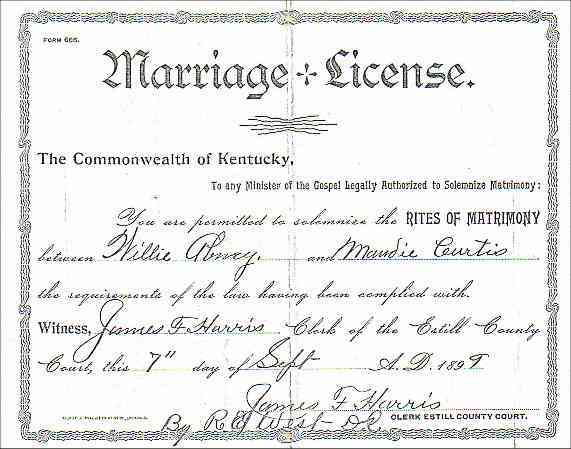 FORM 665.
Marriage + License.
The Commonwealth of Kentucky,
To any Minister of the Gospel Legally Authorized to Solemnize Matrimony:
You are permitted to solemnize the RITES OF MATRIMONY
between Willie Abney. and Maudie Curtis
the requirements of the law having been complied with.
Witness, James F Harris Clerk of the Estill County
Court, this 7" day of Sept A.D. 1899
James F Harris
CLERK ESTILL COUNTY COURT.
By R E West DC